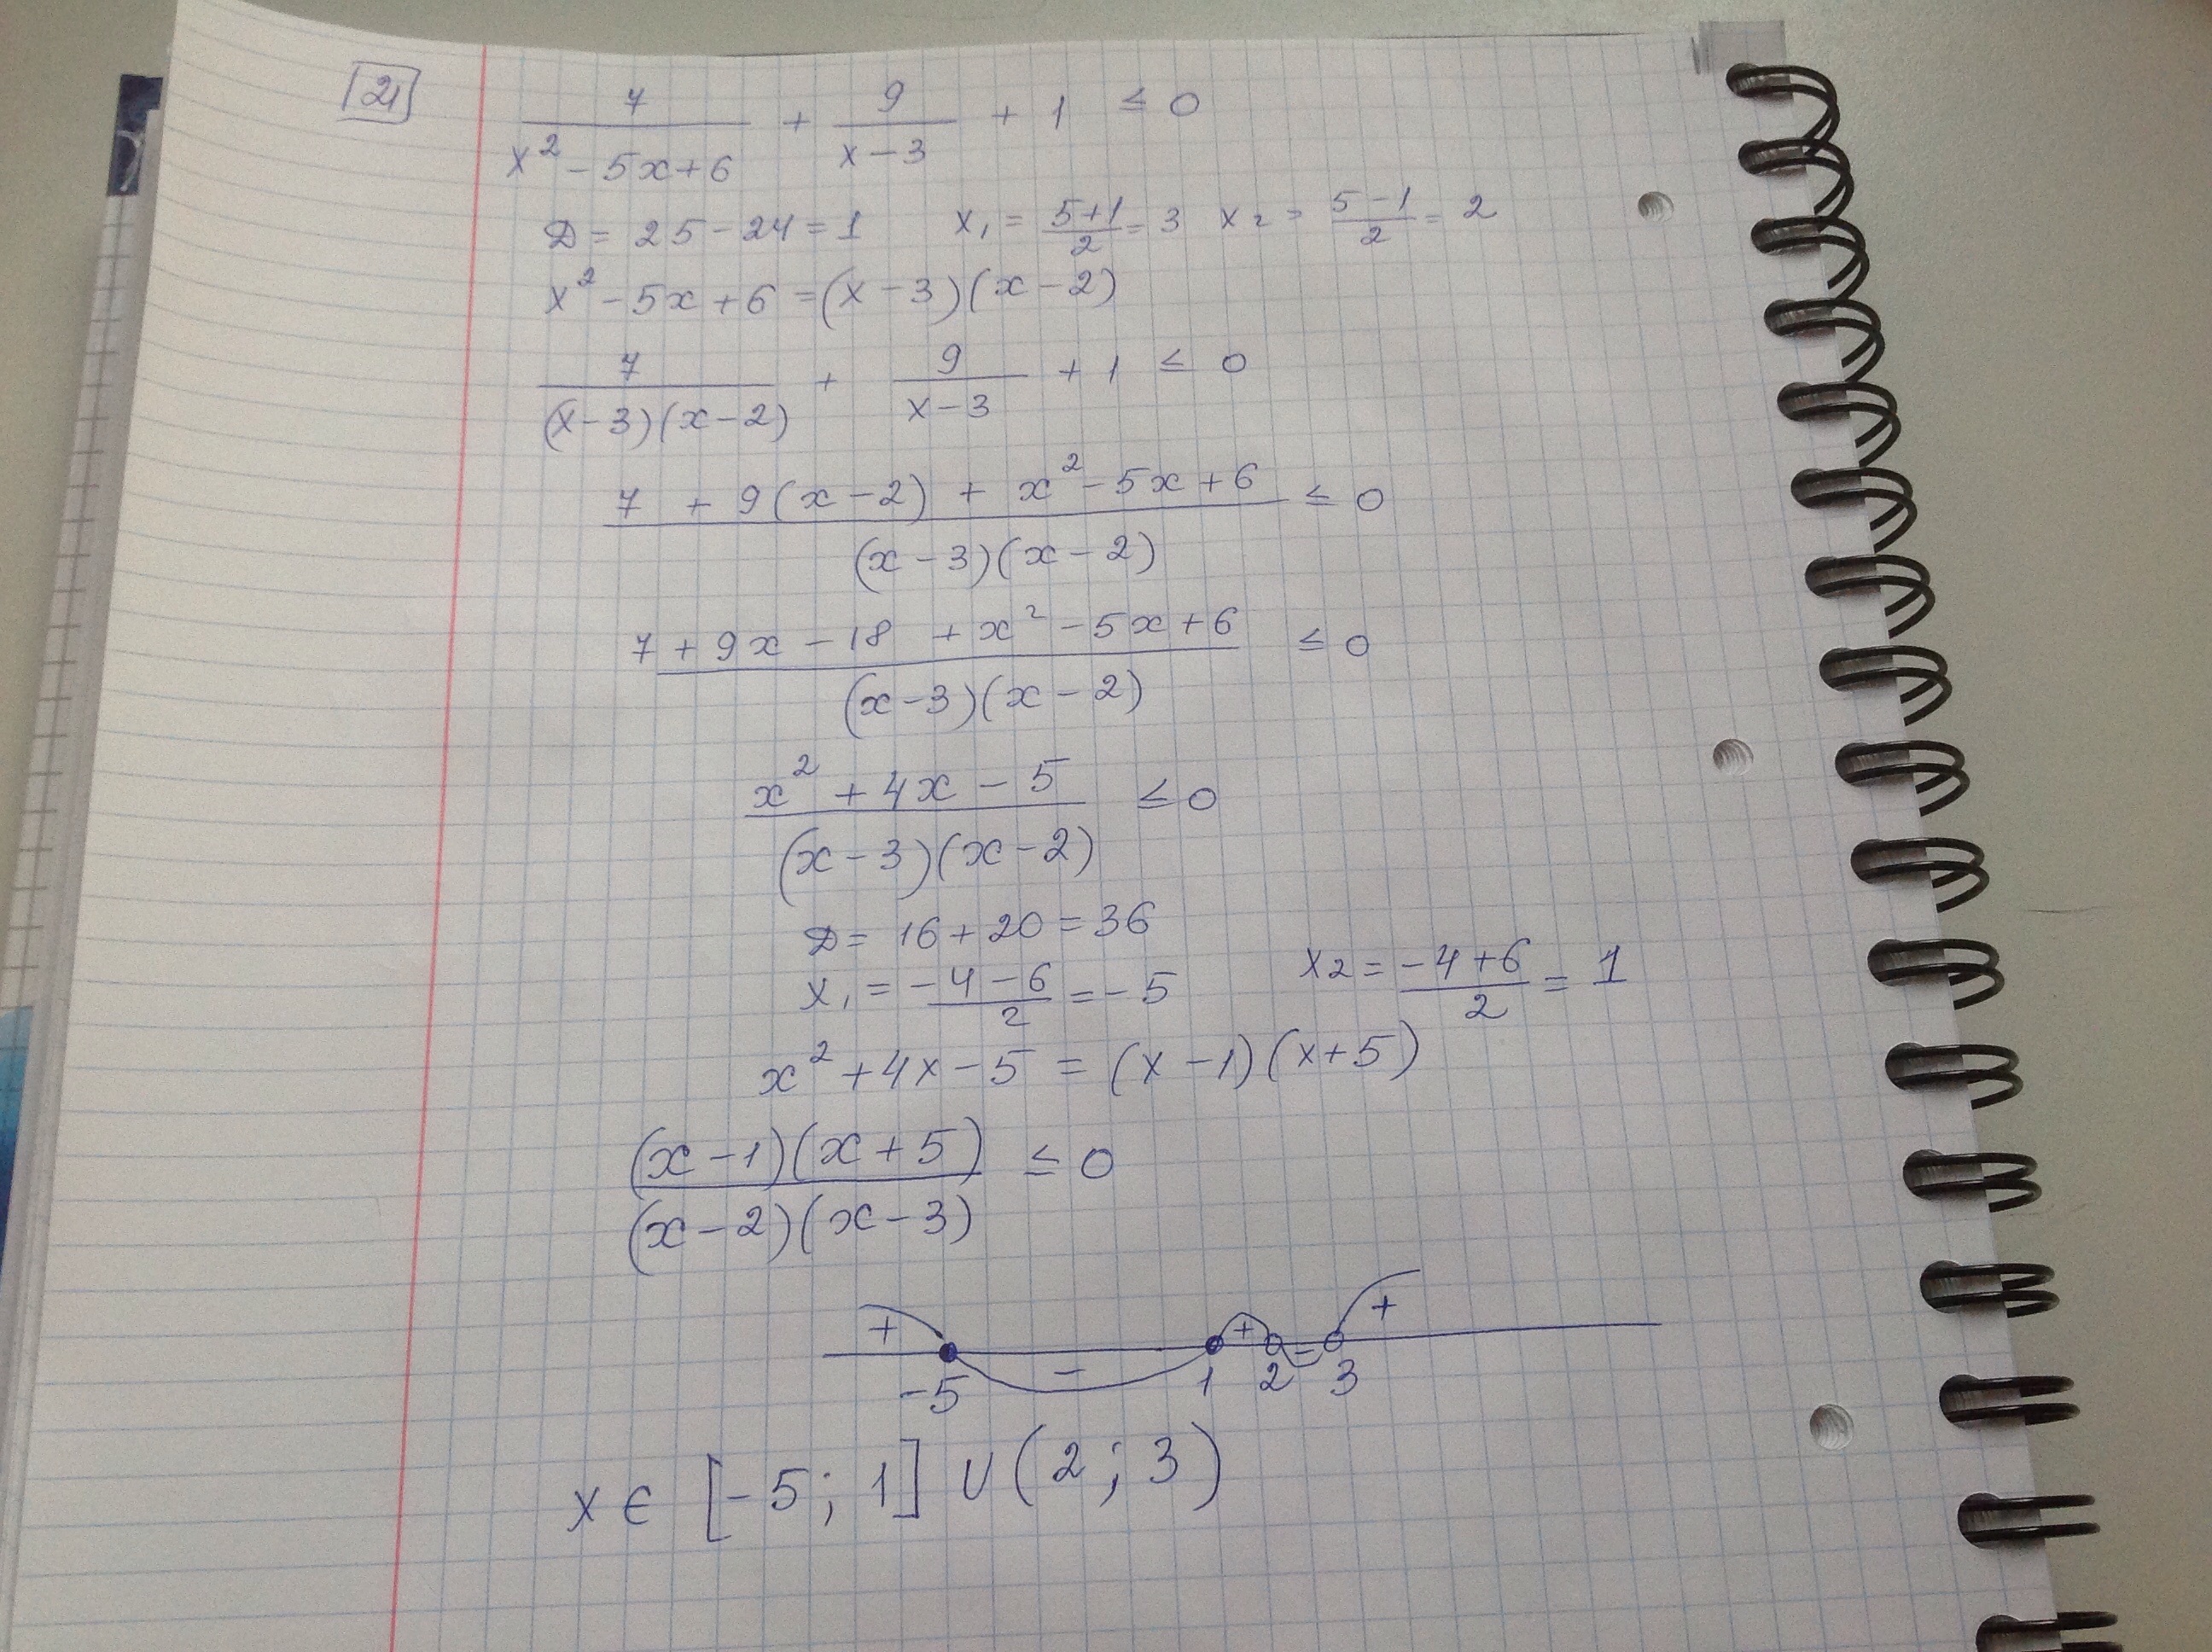 21
7/(x² - 5x + 6) + 9/(x - 3) + 1 ≤ 0
D = 25 - 24 = 1 x₁ = (5+1)/2 = 3 x₂ = (5-1)/2 = 2
x² - 5x + 6 = (x - 3)(x - 2)
7/((x - 3)(x - 2)) + 9/(x - 3) + 1 ≤ 0
(7 + 9(x - 2) + x² - 5x + 6)/((x - 3)(x - 2)) ≤ 0
(7 + 9x - 18 + x² - 5x + 6)/((x - 3)(x - 2)) ≤ 0
(x² + 4x - 5)/((x - 3)(x - 2)) ≤ 0
D = 16 + 20 = 36
x₁ = (-4 - 6)/2 = -5 x₂ = (-4 + 6)/2 = 1
x² + 4x - 5 = (x - 1)(x + 5)
((x - 1)(x + 5))/((x - 2)(x - 3)) ≤ 0
+ - + - +
-5 1 2 3
x ∈ [-5; 1] ∪ (2; 3)